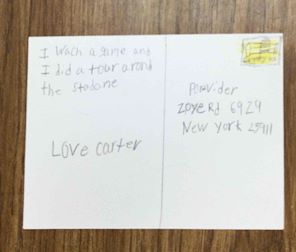 I Wach a game and
I did a tour arond
the stadone
Love carter
Porvider
zoye Rd 6929
New York 25911